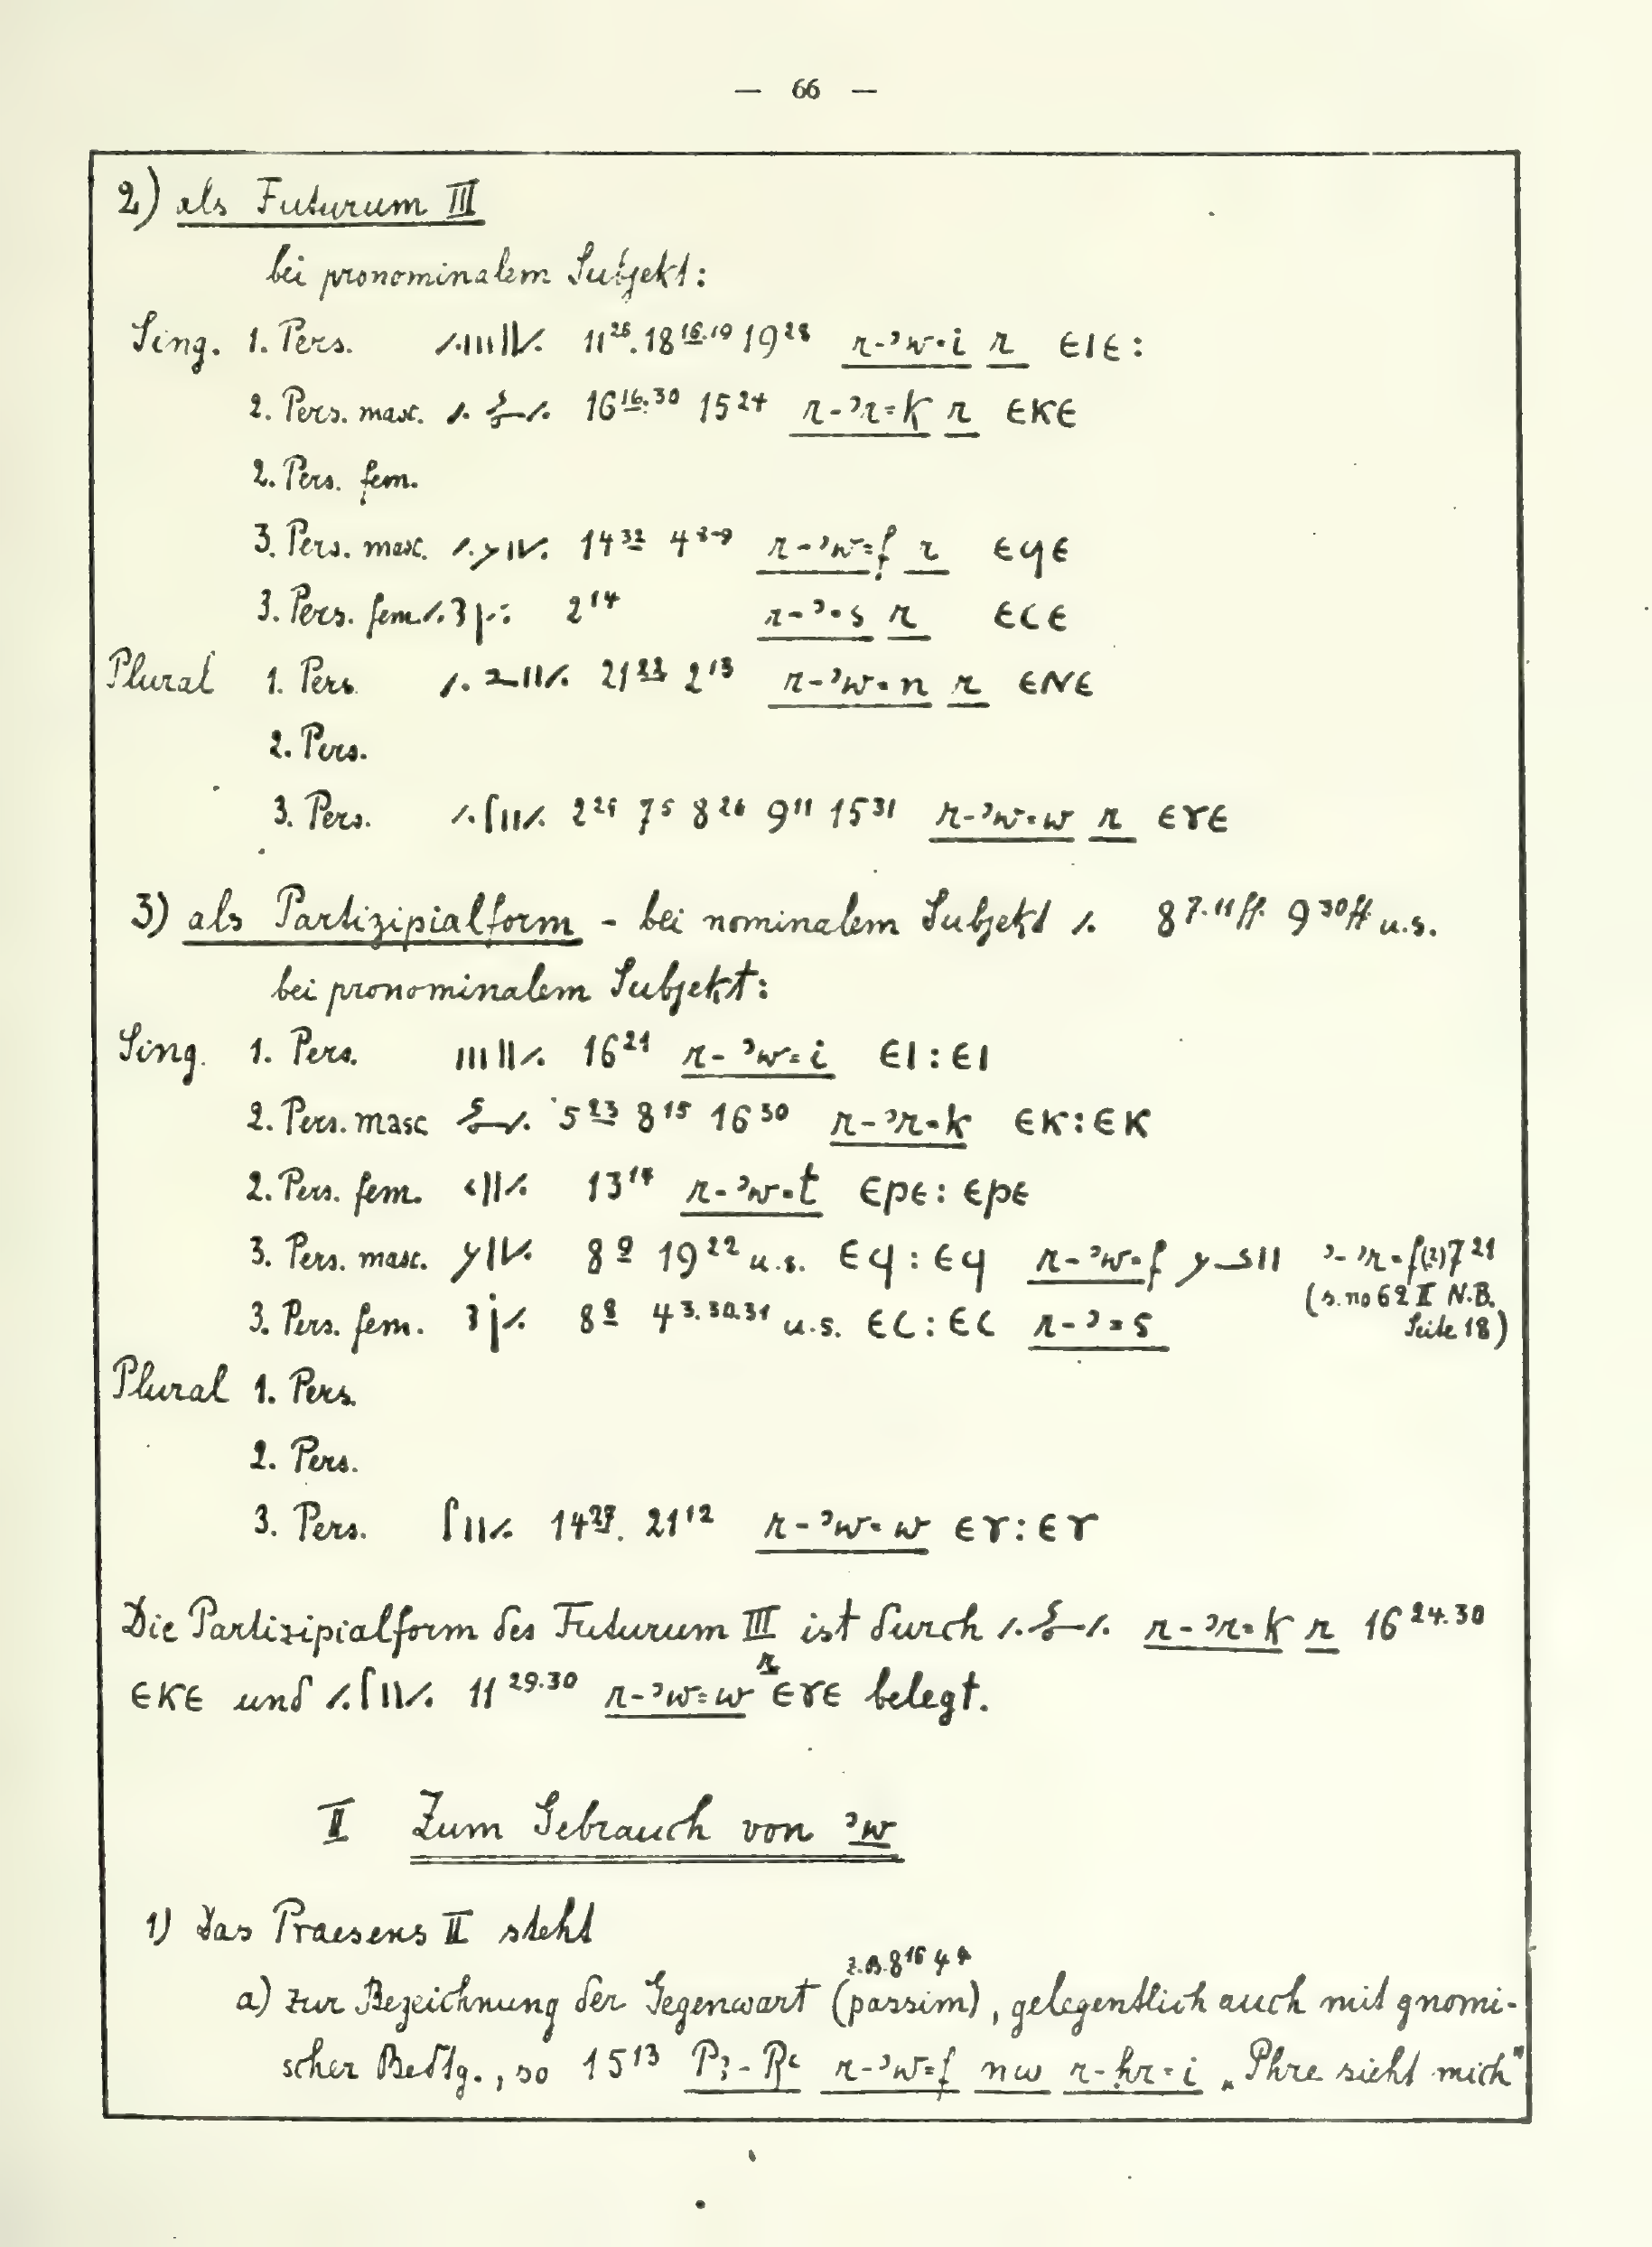 — 66 —
2) als Futurum III
bei pronominalem Subjekt:
Sing. 1. Pers. 11²⁶. 18¹⁶·¹⁹ 19²⁸ r-ꜣw=i r ⲉⲓⲉ:
2. Pers. masc. 16¹⁶·³⁰ 15²⁴ r-ꜣr=k r ⲉⲕⲉ
2. Pers. fem.
3. Pers. masc. 14³² 4⁸⁻⁹ r-ꜣw=f r ⲉϥⲉ
3. Pers. fem. 2¹⁴ r-ꜣ=s r ⲉⲥⲉ
Plural 1. Pers. 21²² 2¹³ r-ꜣw=n r ⲉⲛⲉ
2. Pers.
3. Pers. 2²⁵ 7⁵ 8²⁶ 9¹¹ 15³¹ r-ꜣw=w r ⲉⲩⲉ
3) als Partizipialform - bei nominalem Subjekt 8⁷·¹¹ff. 9³⁰ff. u.s.
bei pronominalem Subjekt:
Sing. 1. Pers. 16²¹ r-ꜣw=i ⲉⲓ:ⲉⲓ
2. Pers. masc 5²³ 8¹⁵ 16³⁰ r-ꜣr=k ⲉⲕ:ⲉⲕ
2. Pers. fem. 13¹⁴ r-ꜣw=t ⲉⲣⲉ:ⲉⲣⲉ
3. Pers. masc. 8⁹ 19²² u.s. ⲉϥ:ⲉϥ r-ꜣw=f ꜣ-ꜣr=f(?) 7²¹
(s. no 62 II N.B.
3. Pers. fem. 8⁸ 4³·³⁰·³¹ u.s. ⲉⲥ:ⲉⲥ r-ꜣ=s Seite 18)
Plural 1. Pers.
2. Pers.
3. Pers. 14²⁷. 21¹² r-ꜣw=w ⲉⲩ:ⲉⲩ
Die Partizipialform des Futurum III ist durch r-ꜣr=k r 16²⁴·³⁰
ⲉⲕⲉ und 11²⁹·³⁰ r-ꜣw=w r ⲉⲩⲉ belegt.
II Zum Gebrauch von ꜣw
1) Das Praesens II steht
a) zur Bezeichnung der Gegenwart (passim z.B. 8¹⁶ 4⁹), gelegentlich auch mit gnomi-
scher Bedtg., so 15¹³ Pꜣ-Rꜥ r-ꜣw=f nw r-ḥr=i „Phre sieht mich"